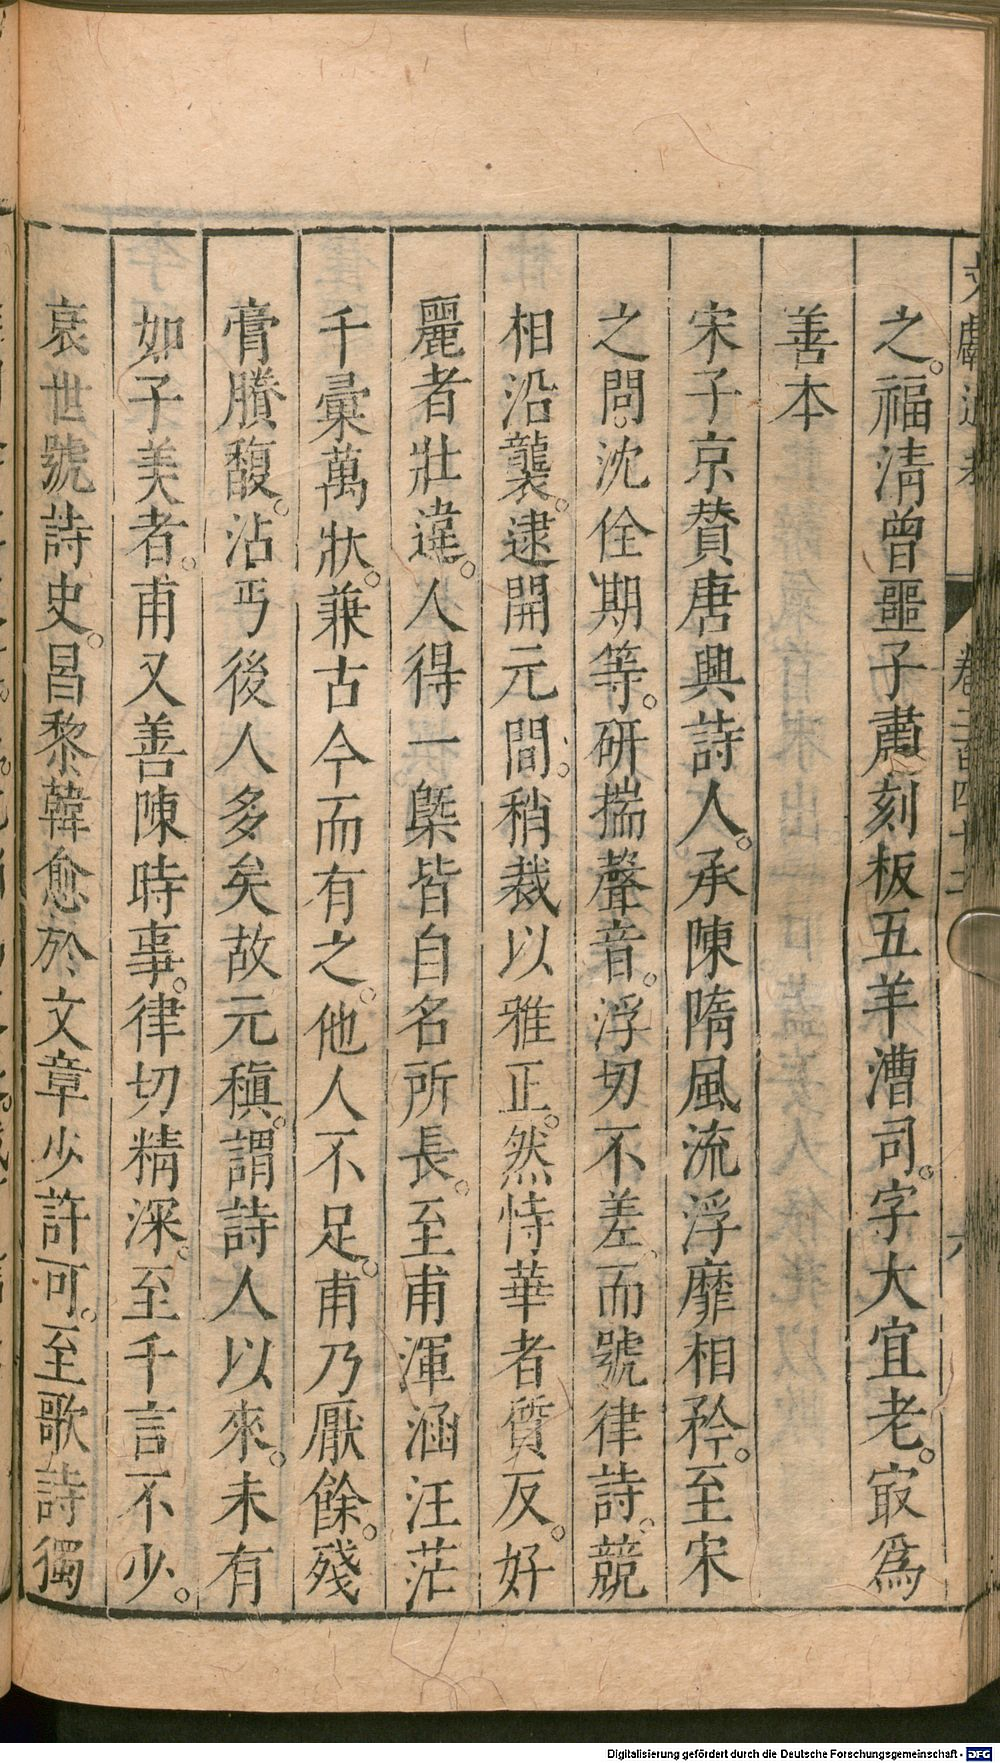 之。福清曾噩子肅刻板五羊漕司。字大宜老。㝡爲
善本
宋子京贊唐興詩人。承陳隋風流浮靡相矜。至宋
之問。沈佺期等。研揣聲音。浮切不差。而號律詩。競
相沿襲。逮開元間。稍裁以雅正。然恃華者質反。好
麗者壯違。人得一槩皆自名所長。至甫渾涵汪茫
千彙萬狀。兼古今而有之。他人不足。甫乃厭餘。殘
膏賸馥。沾丐後人多矣故元稹。謂詩人以來。未有
如子美者。甫又善陳時事。律切精深。至千言不少。
衰世號詩史。昌黎韓愈於文章少許可。至歌詩獨
Digitalisierung gefördert durch die Deutsche Forschungsgemeinschaft - DFG